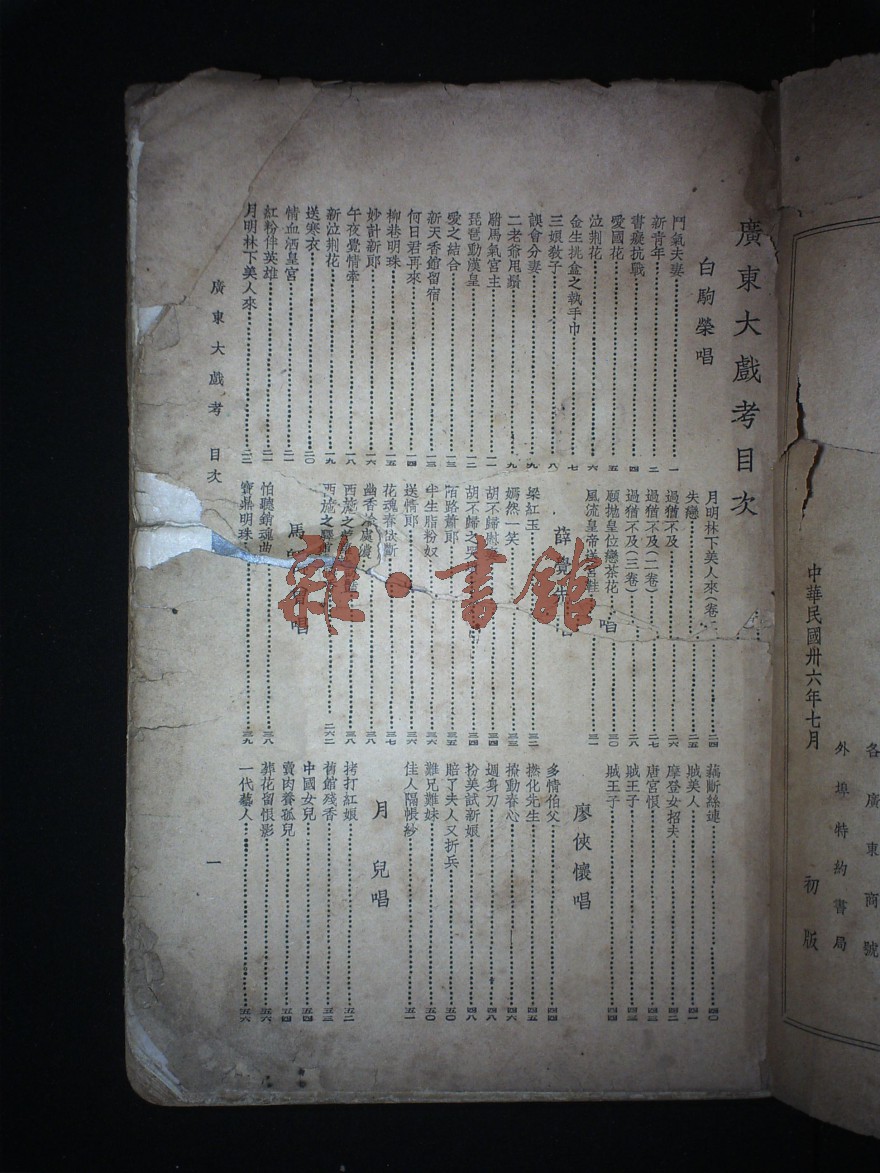 各廣東商號
外埠特約書局
中華民國卅六年七月 初版
廣東大戲考目次
白駒榮唱
鬥氣夫妻 一
新青年 二
書癡抗戰 四
愛國花 五
泣荆花 六
金生挑盒之執手巾 七
三娘教子 八
誤會分妻 九
二老爺甩鬚 九
駙馬氣宮主 一一
琵琶動漢皇 一二
愛之結合 一三
新天香館留宿 一三
何日君再來 一四
柳巷明珠 一五
妙計新郎 一六
午夜覺情牽 一八
新泣荆花 一九
送寒衣 二〇
情血洒皇宮 二一
紅粉伴英雄 二一
月明林下美人來 二二
月明林下美人來(卷二 二四
失戀 二五
過猶不及 二六
過猶不及(二卷) 二七
過猶不及(三卷) 二八
願拋皇位戀茶花 三〇
風流皇帝送宮鞋 三一
薛覺先唱
梁紅玉 三二
嫣然一笑 三三
胡不歸慰 三四
胡不歸之哭 三四
陌路蕭郎 三五
半生脂粉奴 三六
送情郎 三六
花魂春欲斷 三七
幽香冷處濃 三八
西施之 三八
西施之 二六二
馬 唱
怕聽銷魂曲 三八
寶鼎明珠 三九
藕斷絲連 四〇
賊美人 四一
摩登女招夫 四二
唐宮恨 四三
賊王子 四三
賊王子 四四
廖俠懷唱
多情伯父 四四
撚化先生 四五
撩動春心 四六
週身刀 四八
扮美試新娘 四八
賠了夫人又折兵 五〇
難兄難妹 五〇
佳人隔帳紗 五一
月兒唱
拷打紅娘 五二
舊館殘香 五三
中國女兒 五四
賣肉養孤兒 五四
葬花留恨影 五六
一代藝人 五六
廣東大戲考 目次 一
雜·書館